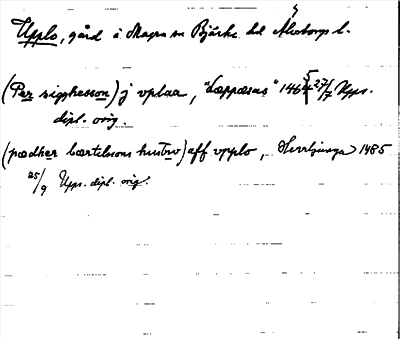 Upplo, gård i Magra sn Bjärke hd Älvsborgs l.
(Per sigghesson) j vplaa, "Læppæsas" 1464 27/7 Upps.
dipl. orig.
(pædher bærtilssons hustrv) aff vpplo, Herrljunga 1485
25/9 Upps. dipl. orig.